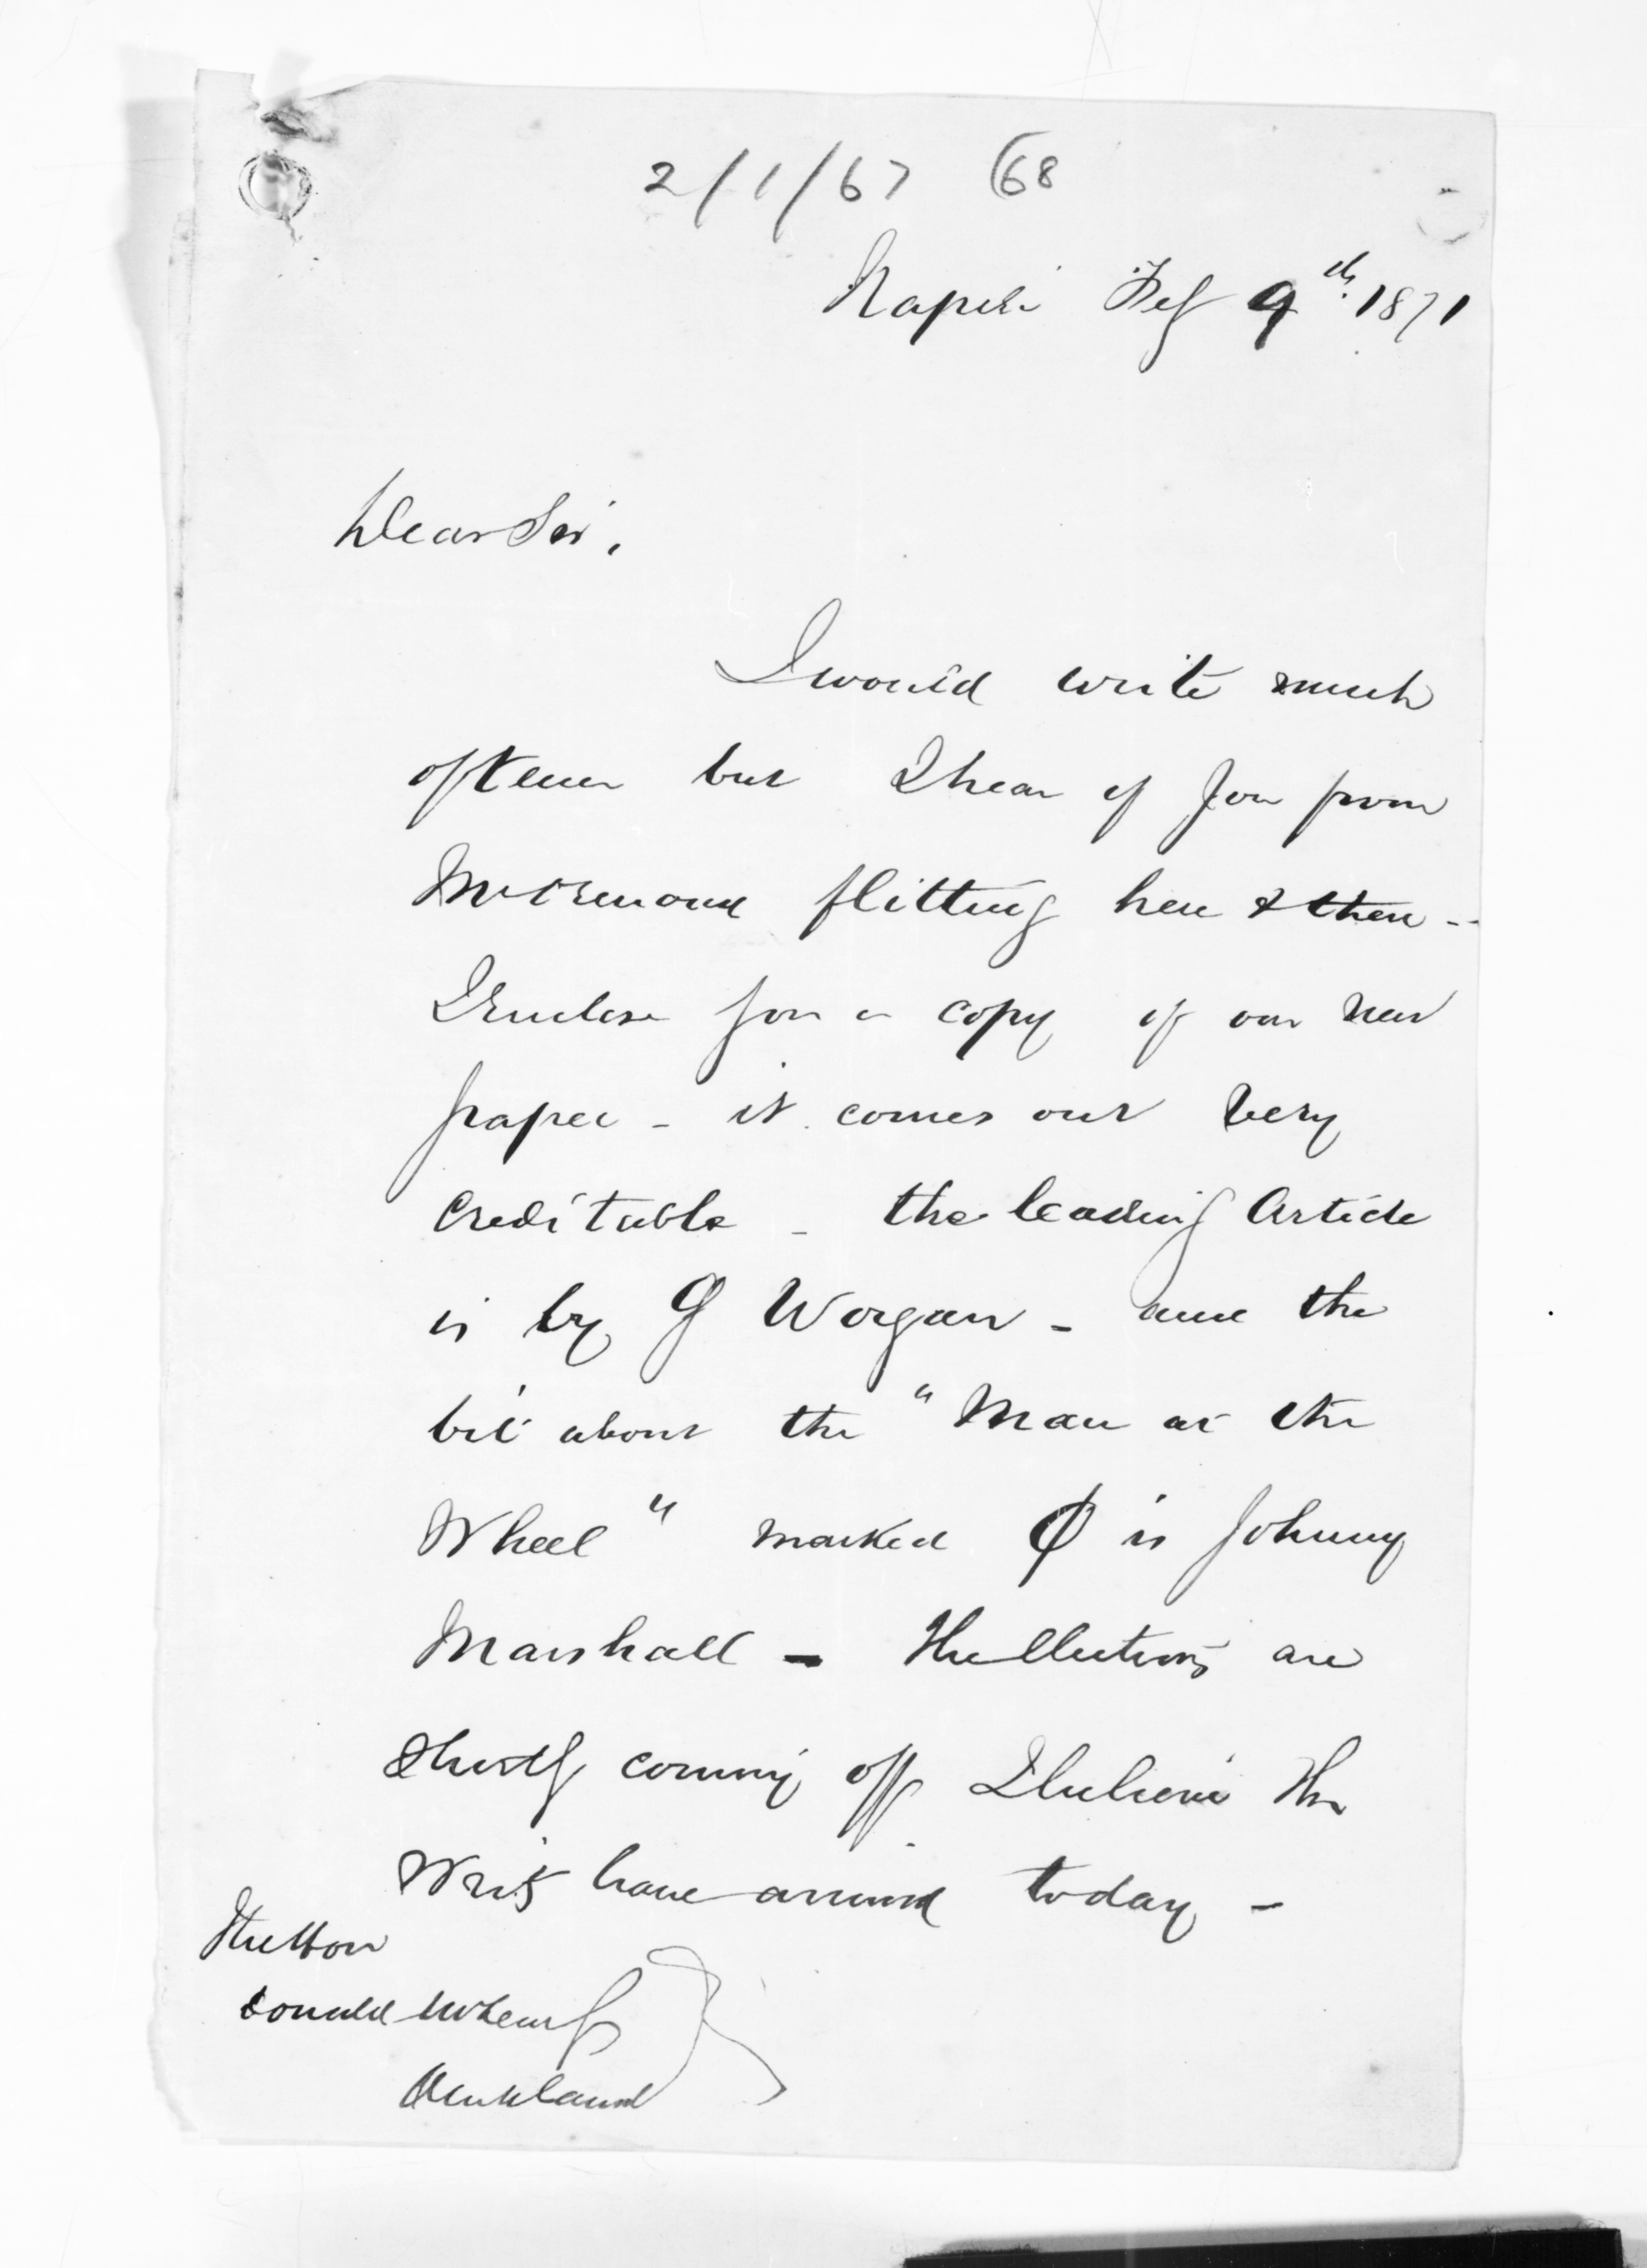 2/1/67 (68
Napier Feby 9th. 1871
Dear Sir,
I would write much
oftener but I hear of you from
Mr Ormond flitting here & there -
I Enclose you a copy of our new
paper - it comes out very
Creditable - the leading Article
is by G Worgan - and the
bit about the "Man at the
Wheel" marked Φ is Johnny
Marshall - The Elections are
Shortly coming off I believe the
Writs have arrived today -
The Hon
Donald McLean
Auckland